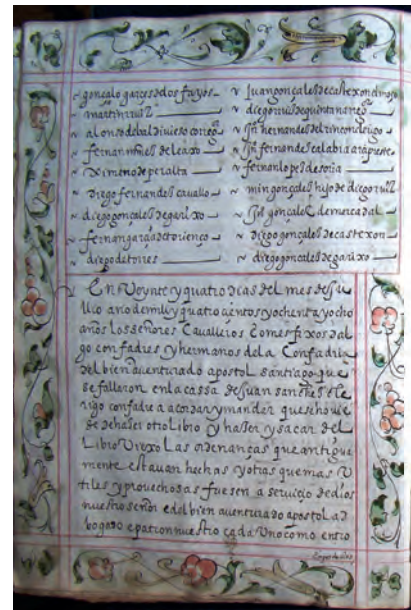 gonçalo garces de dos fayos
martin ruiz
alonso de baldivieso corre.or
fernan nuñes de leaxo
ximeno de peralta
diego fernandes cavallo
diego gonçales de garixo
fernan garcia de torienço
diego de torres
Juan gonçales de castexon el moço
diego ruis de quintana
Ju hernandes del rincon de
Ju fernandes calabia
fernan lopes de soria
min gonçales hijo de diego ruiz
Ju gonçalez de mercadal
diego gonçales de castexon
diego gonçales de garixo
En Veynte y quatro dias del mes de Ju
llio año de mill y quatro çientos y ochenta y ocho
años los señores Cavalleros e omes fixos dal
go confadres y hermanos de la Confadria
del bien aventurado apostol santiago que
se falleron en la cassa de Juan sanches cle
rigo confadre acordar y mander que se hovie
de de haser otro Libro y hasser y sacar del
Libro Viexo Las ordenanças que antigua
mente estavan hechas y otras que mas V
tiles y provechosas fuesen a serviçio de dios
nuestro señor e del bien aventurado apostol a
bogado e patron nuestro cada Uno como entro